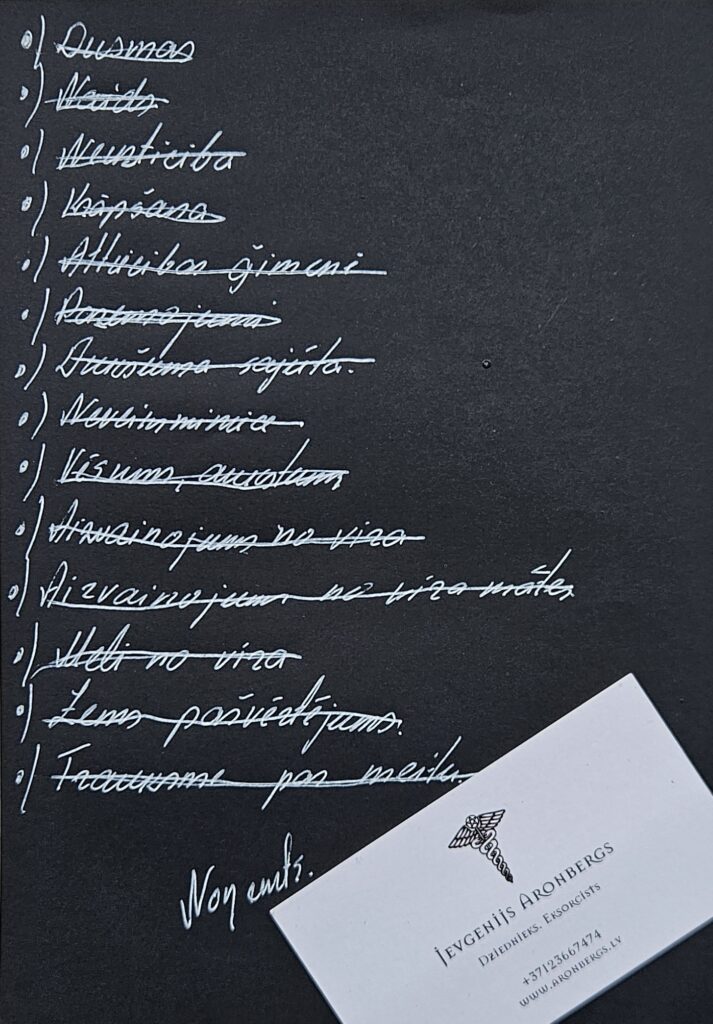 •) Dusmas
•) Naids
•) Neuzticība
•) Krāpšana
•) Attiecības ģimenē
•) Pazemojumi
•) Dusmas sajūta.
•) Neveiksminiece
•) Vēsums, aukstums
•) Aizvainojums no vīra
•) Aizvainojums no vīra mātes
•) Meli no vīra
•) Zems pašvērtējums.
•) Trauksme par meitu.
Noņemts.
JEVGENIJS ARONBERGS
DZIEDNIEKS. EKSORCISTS
+37123667474
WWW.ARONBERGS.LV